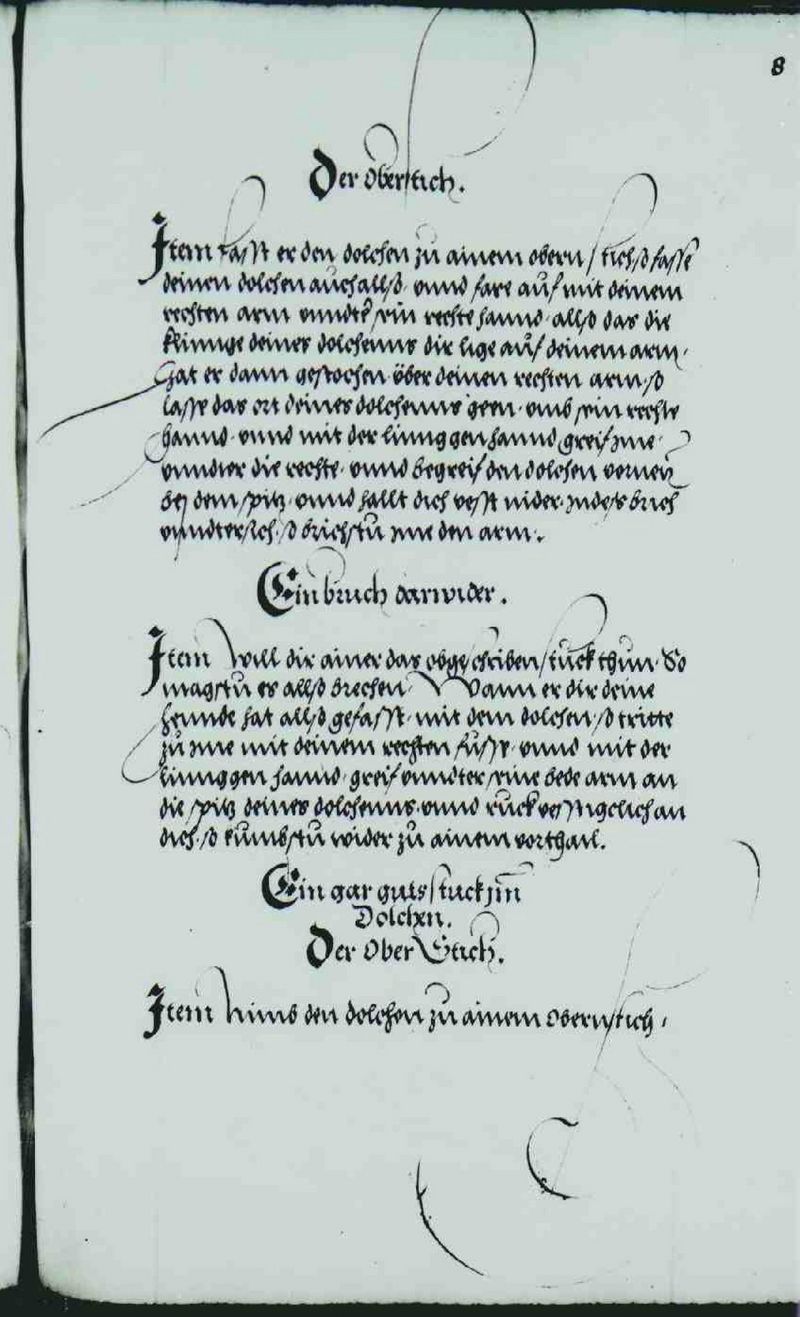 8
Der oberstich.
Item fasst er den dolchen zu ainem obern stich, so fasse
deinen dolchen auch allso, vnnd fare auf mit deinem
rechten arm vnndter sein rechte hannd, allso das die
klinnge deines dolchenns dir lige auf deinem arm,
Hat er dann gestochen, über deinen rechten arm, so
lasse das ort deines dolchenns geen, vmb sein rechte
hannd, vnnd mit der linnggen hannd, greif jme,
vnndter die rechte, vnnd begreif den dolchen vornen
bej dem spitz, vnnd hallt dich vesst nider, jndess brich
vnndtersich, so brichstu jme den arm.
Ein bruch darwider.
Item Will dir ainer das obgeschriben stuck thun, So
magstu es allso brechen, Wann er dir deine
hennde hat allso gefasst, mit dem dolchen, so tritte
zu jme mit deinem rechten fuss, vnnd mit der
linnggen hannd, greif vnndter seine bede arm an
die spitz deines dolchenns, vnnd ruck vesstigclich an
dich, so kumbstu wider zu ainem vorthail.
Ein gar guts stuck jm
Dolchen.
Der Ober Stich.
Item Nimb den dolchen zu ainem obern stich,